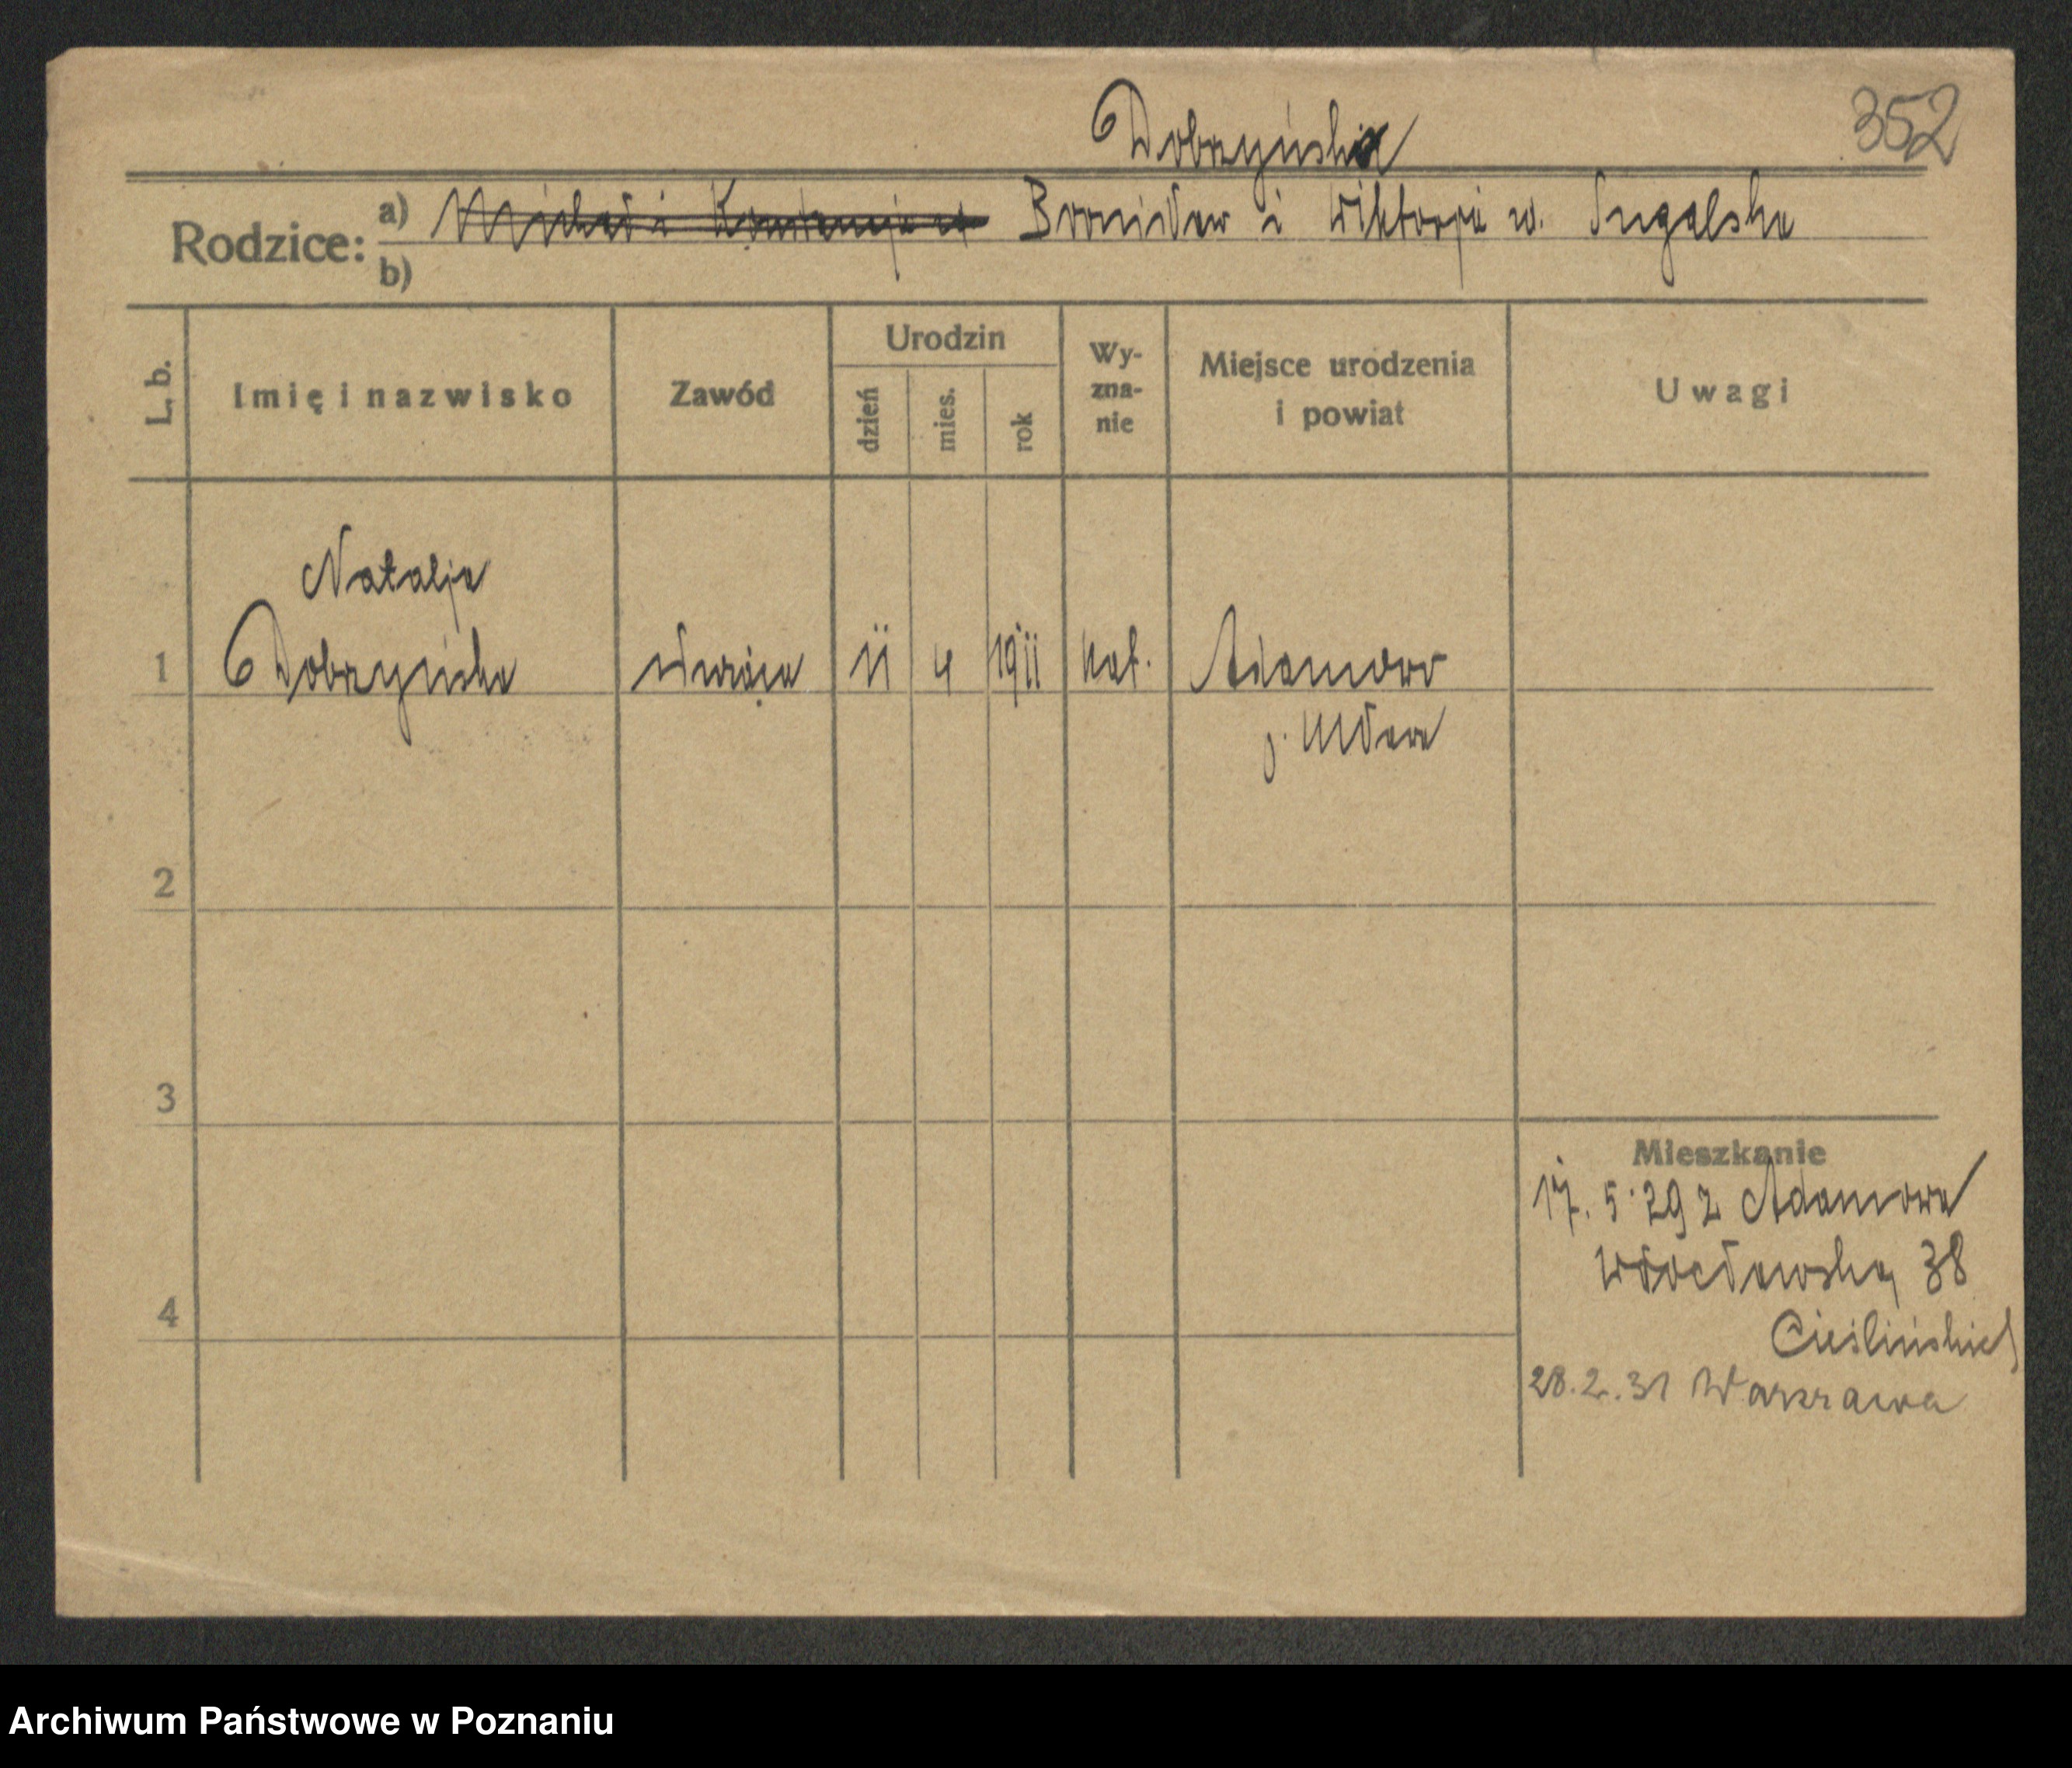 Dobrzyńska 352
Rodzice: a) Michał i Konstancja Bronisław i Wiktorja w. Sugalska
b)
L. b. Imię i nazwisko Zawód Urodzin dzień mies. rok Wyznanie Miejsce urodzenia i powiat Uwagi
Natalja
1 Dobrzyńska służąca 11 4 1911 kat. Adamowo
p. Mława
2
3
Mieszkanie
17. 5. 29 z Adamowa
Wrocławska 38
4
Cieślińskich
28.2.31 Warszawa
Archiwum Państwowe w Poznaniu